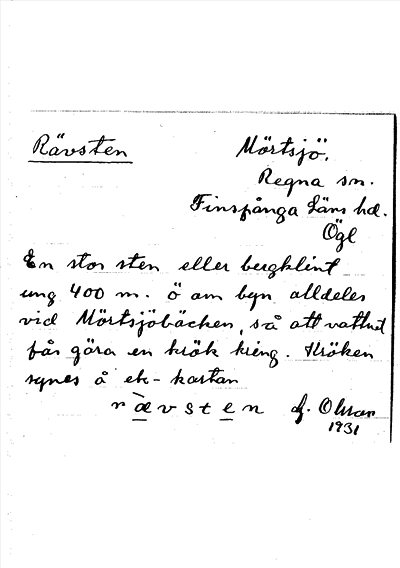 Rävsten
Mörtsjö.
Regna sn.
Finspånga Läns hd.
Ögl
En stor sten eller bergklint
ung 400 m. ö om byn alldeles
vid Mörtsjöbäcken, så att vattnet
får göra en krök kring. Kröken
synes å ek-kartan
r æ̀ v s t e n
1931